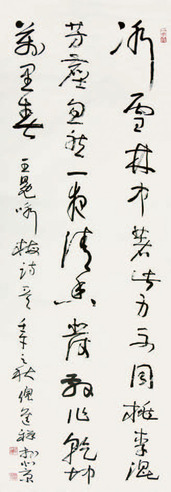 冰雪林中著此身不同桃李混
芳塵忽然一夜清香發散作乾坤
萬里春 王冕咏梅詩意 辛之秋